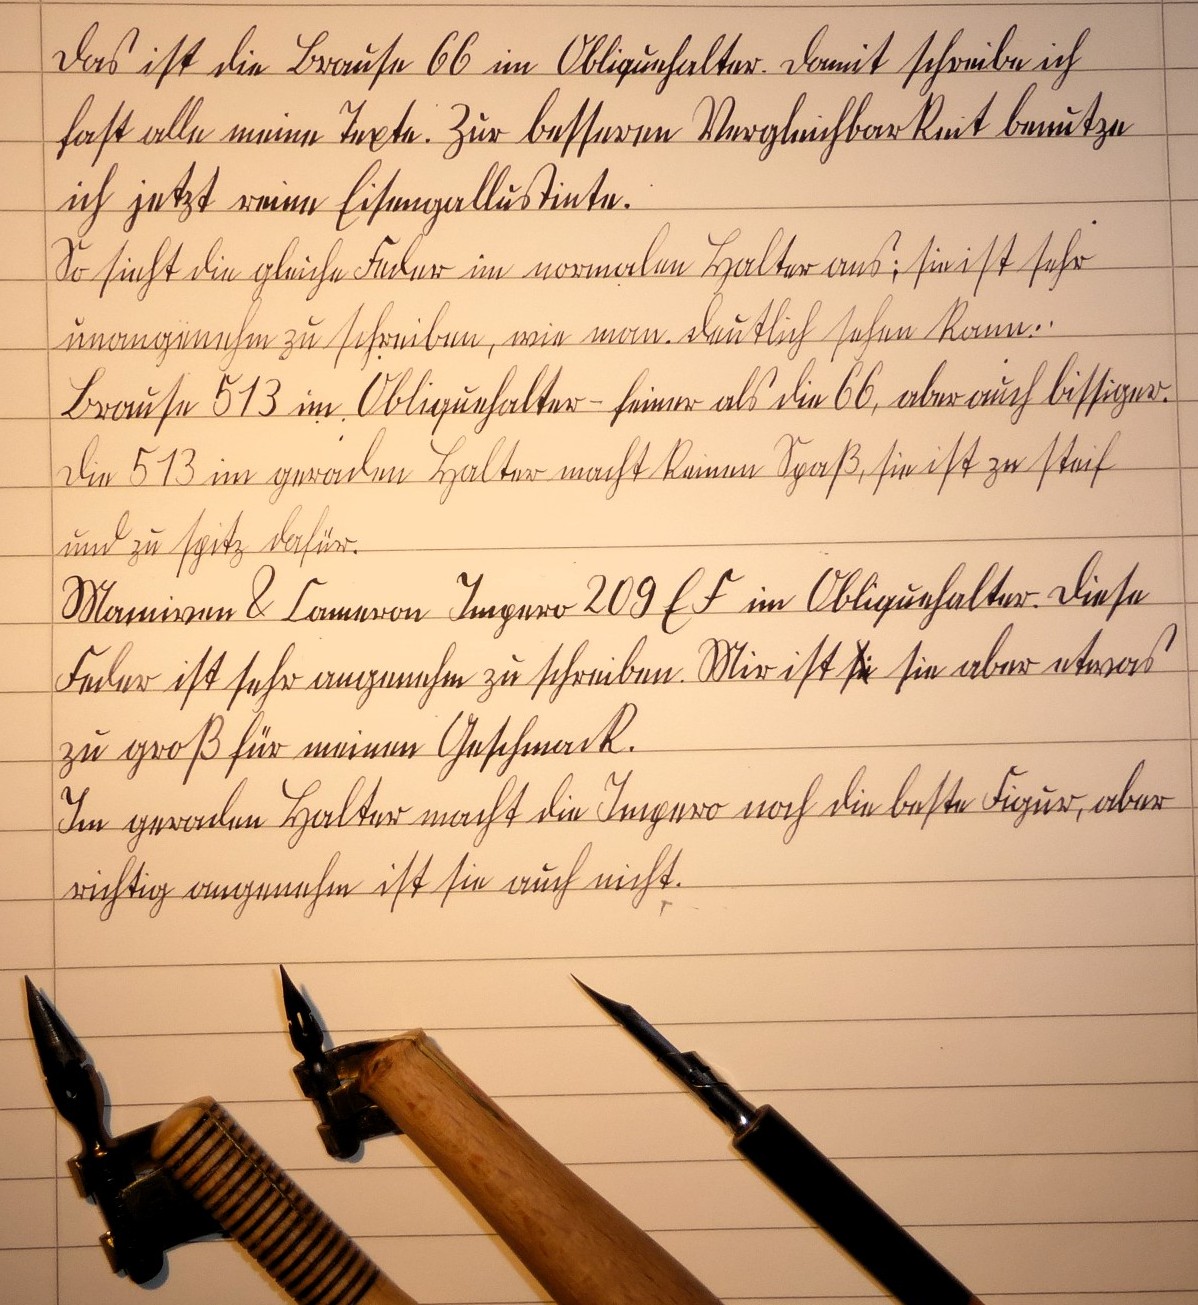 Das ist die Brause 66 im Obliquehalter. Damit schreibe ich
fast alle meine Texte. Zur besseren Vergleichbarkeit benutze
ich jetzt reine Eisengallustinte.
So sieht die gleiche Feder im normalen Halter aus; sie ist sehr
unangenehm zu schreiben, wie man deutlich sehen kann.
Brause 513 im Obliquehalter - feiner als die 66, aber auch bissiger.
Die 513 im geraden Halter macht keinen Spaß, sie ist zu steif
und zu spitz dafür.
Maniven & Cameron Impero 209 EF im Obliquehalter. Diese
Feder ist sehr angenehm zu schreiben. Mir ist sie aber etwas
zu groß für meinen Geschmack.
Im geraden Halter macht die Impero noch die beste Figur, aber
richtig angenehm ist sie auch nicht.